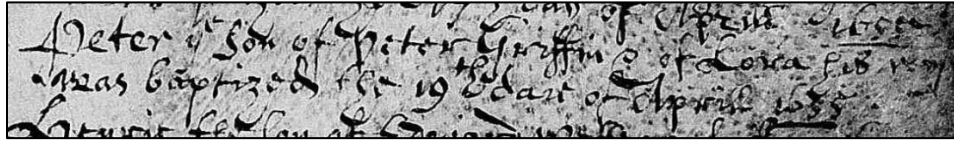 day of Aprill 1655
Peter ye Son of Peter Griffin & of Lora his wyf
was baptized the 19th daie of Aprill 1655
Henrie the son of